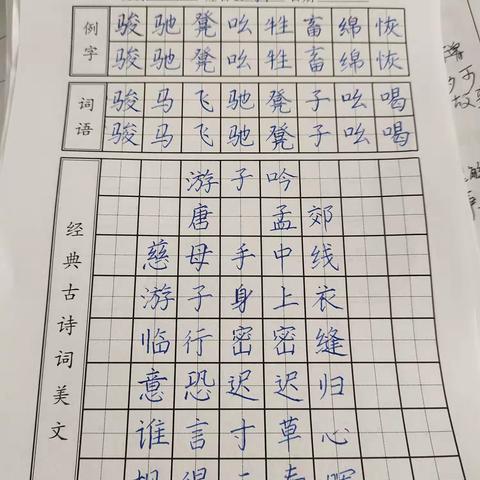 例字
骏驰凳吆牲畜绵恢
骏驰凳吆牲畜绵恢
词语
骏马飞驰凳子吆喝
骏马飞驰凳子吆喝
经典古诗词美文
游子吟
唐 孟郊
慈母手中线
游子身上衣
临行密密缝
意恐迟迟归
谁言寸草心